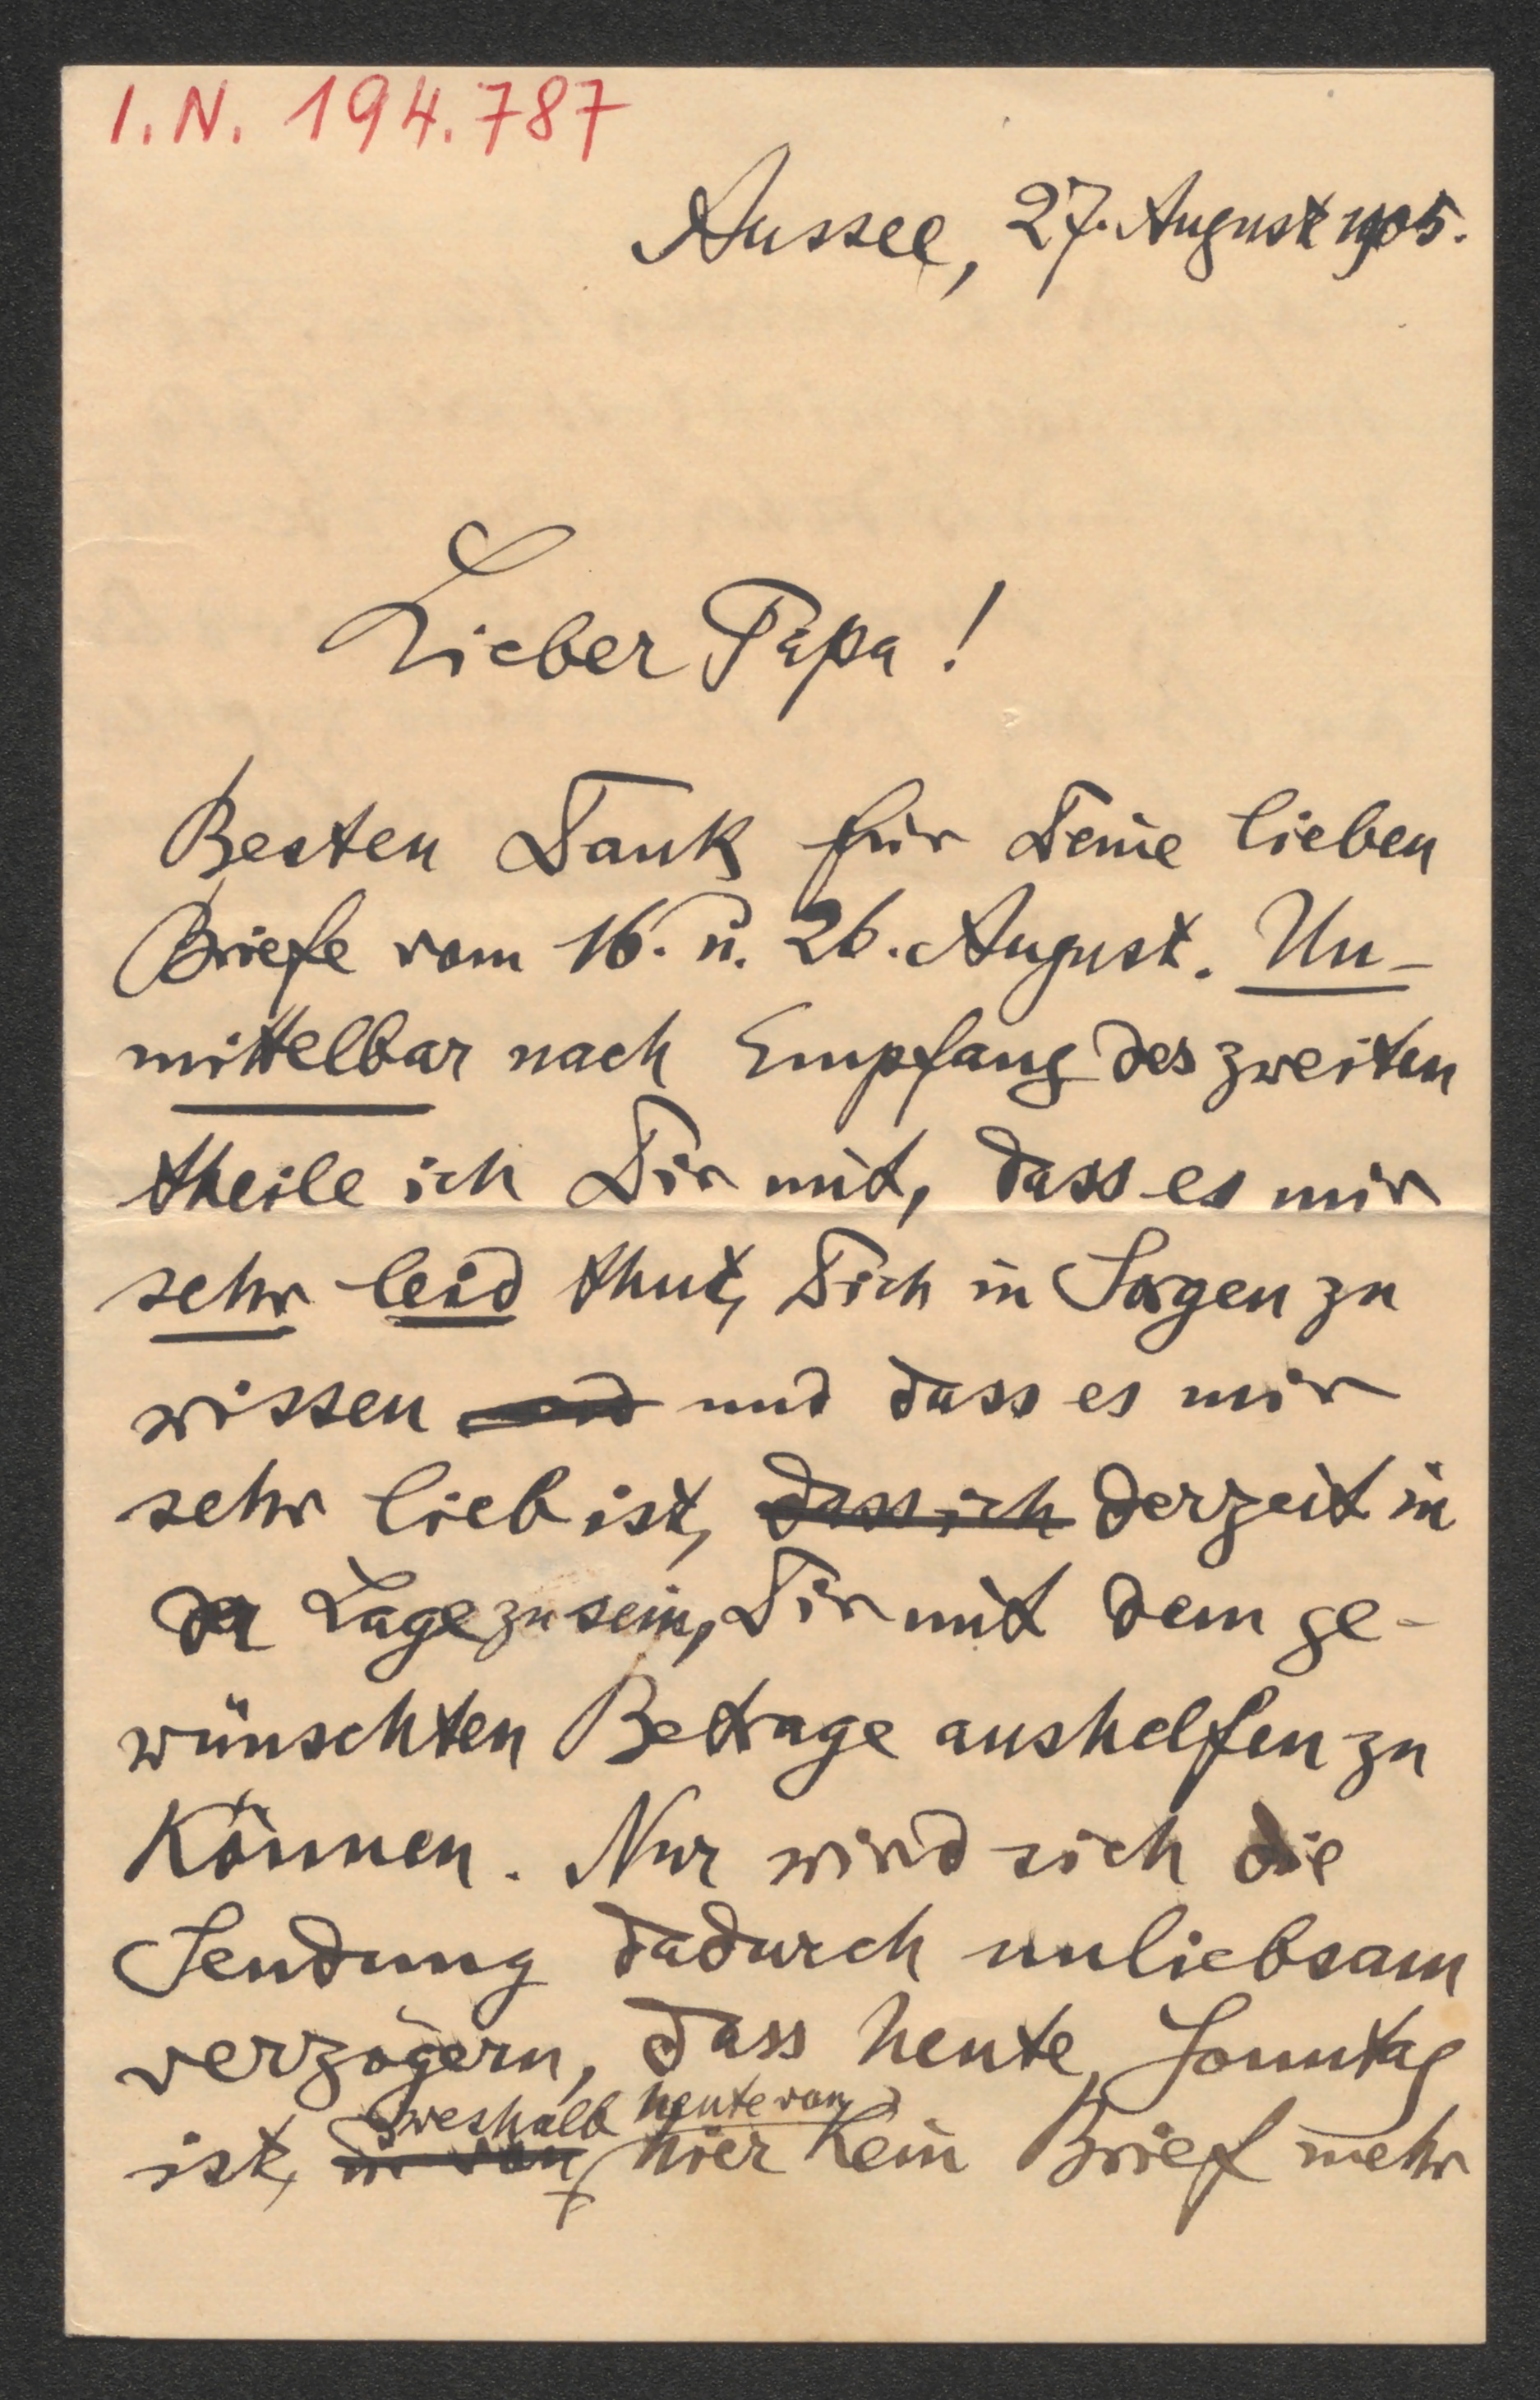 I.N. 194.787
Aussee, 27. August 1905.
Lieber Papa!
Besten Dank für Deine lieben
Briefe vom 16. u. 26. August. Un-
mittelbar nach Empfang des zweiten
theile ich Dir mit, dass es mir
sehr leid thut, Dich in Sorgen zu
wissen und dass es mir
sehr lieb ist, dass ich derzeit in
der Lage zu sein, Dir mit dem ge-
wünschten Betrage aushelfen zu
können. Nur wird sich die
Sendung dadurch unliebsam
verzögern, dass heute Sonntag
weshalb heute von
ist, von hier kein Brief mehr